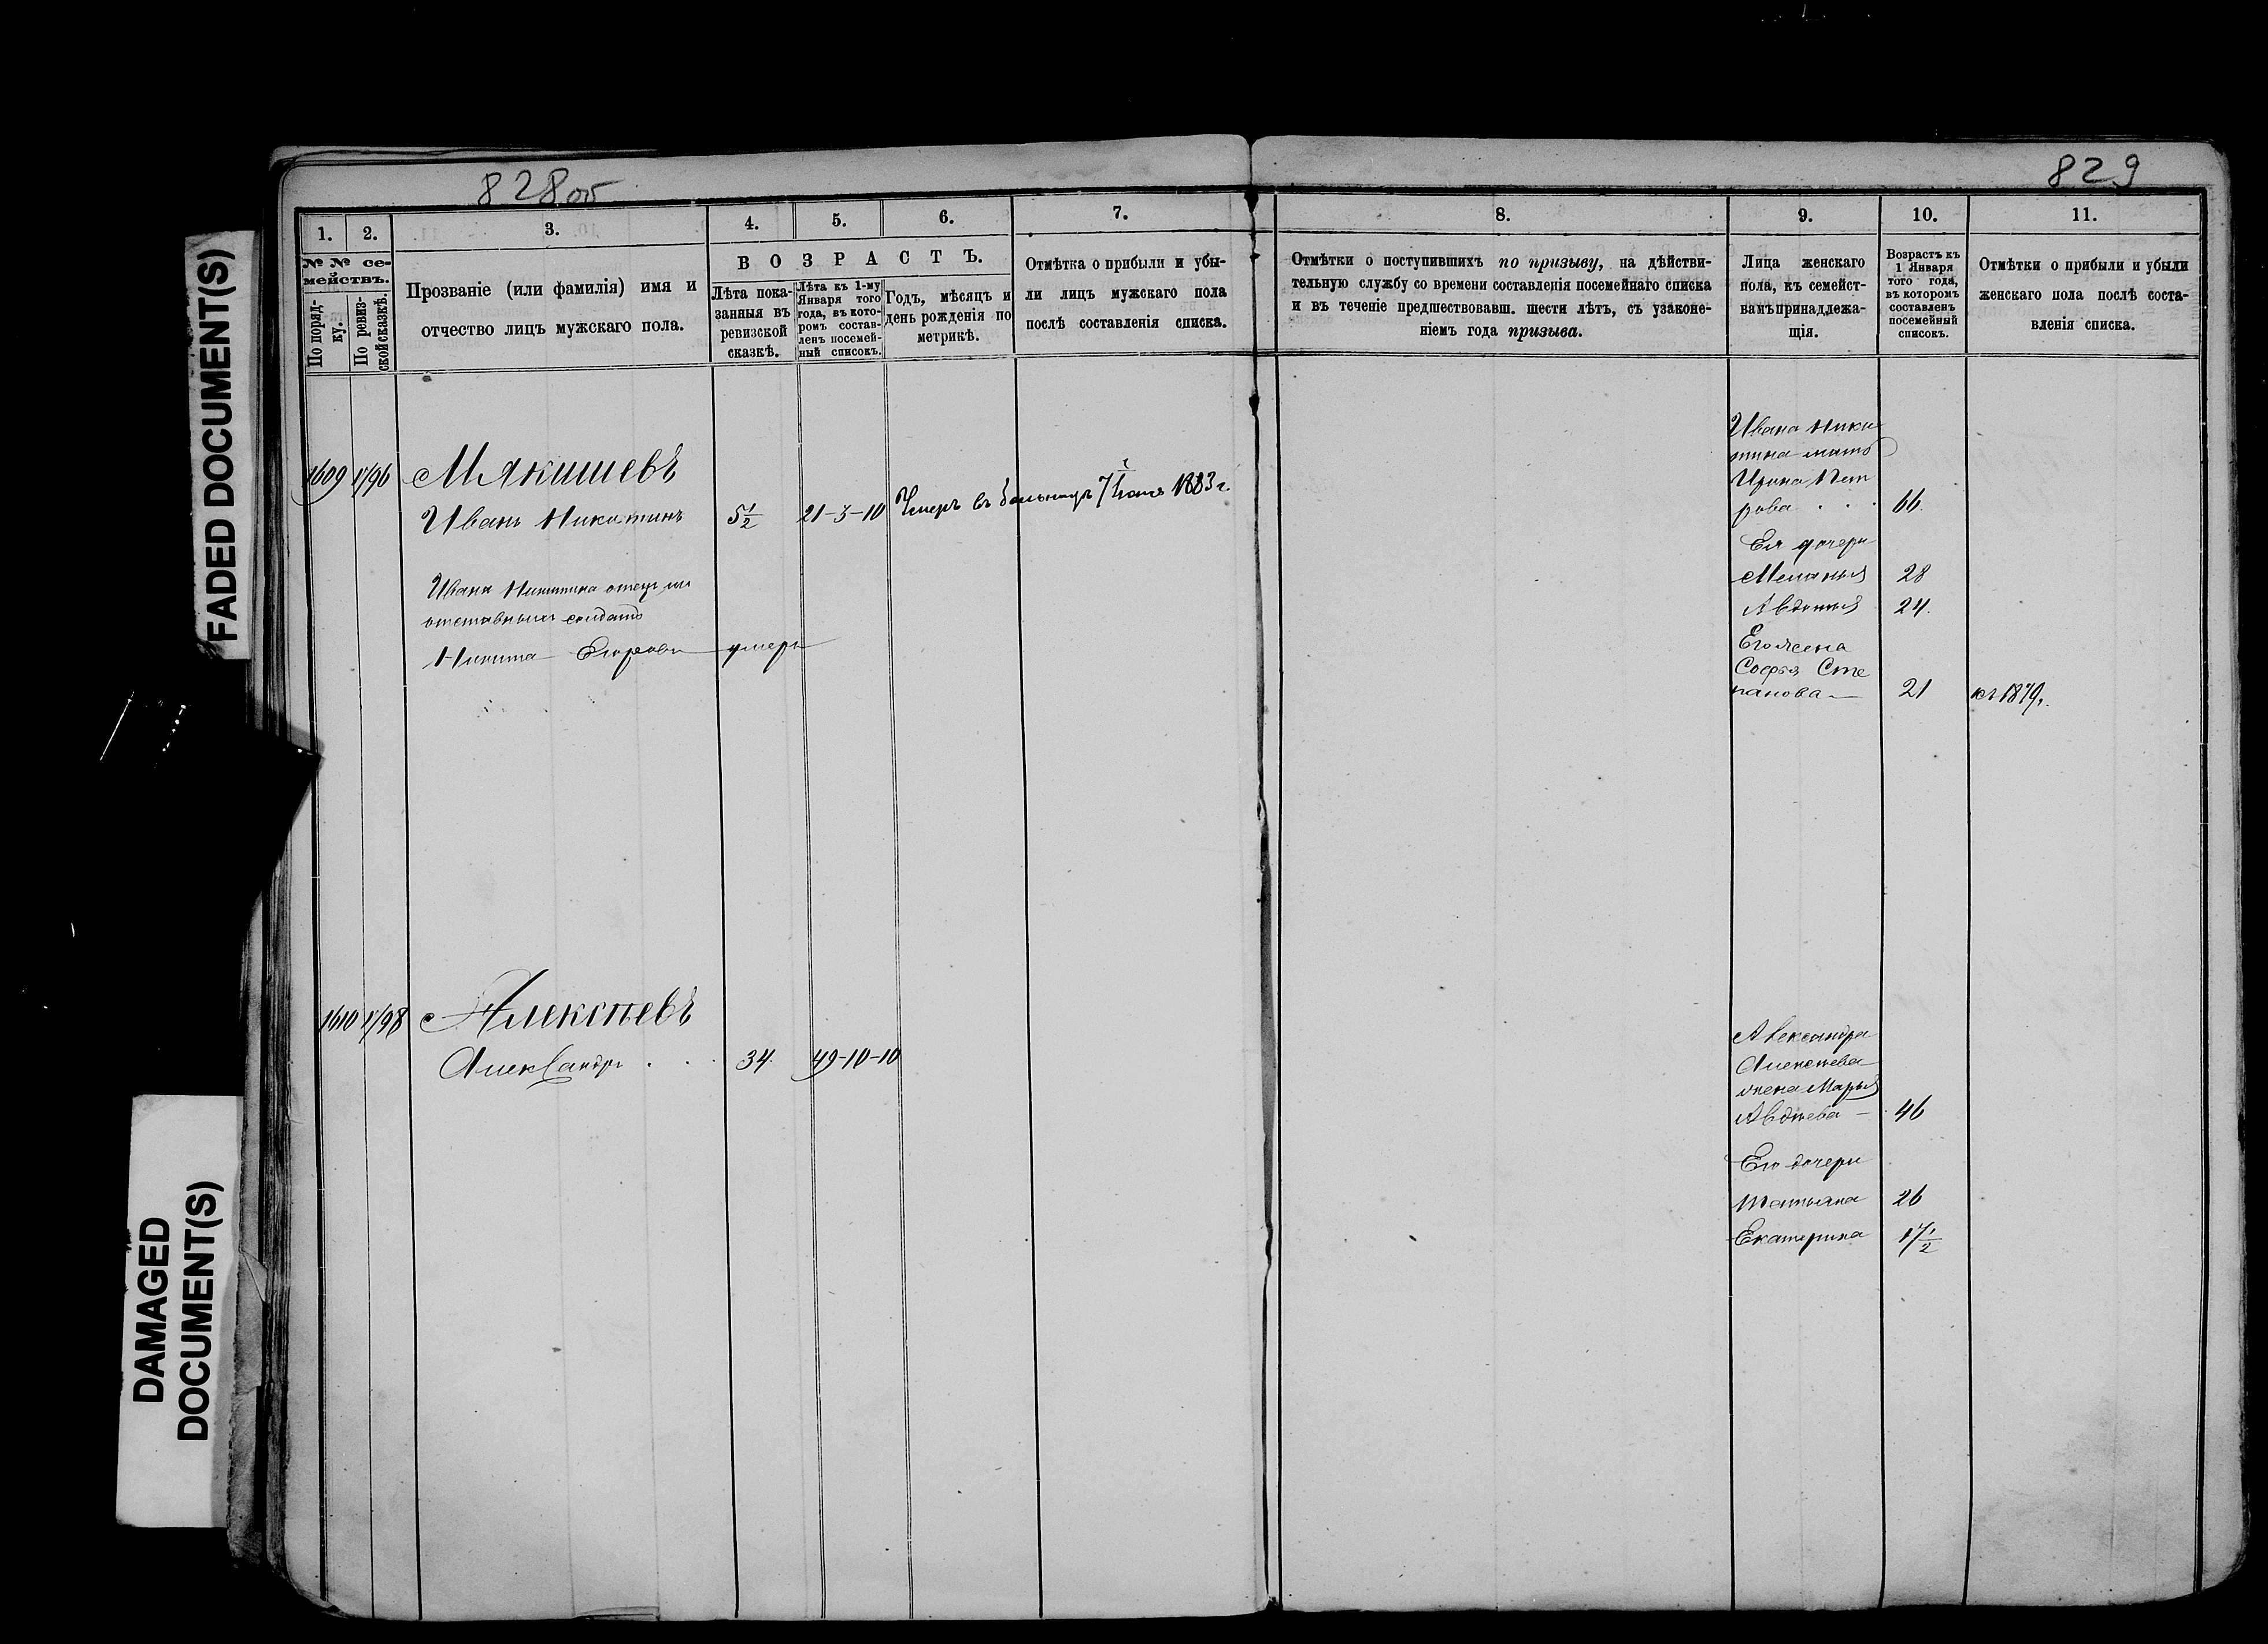 828 об
829
1.
2.
3.
4.
5.
6.
7.
8.
9.
10.
11.
№№ се-
мействъ.
По поряд-
ку.
По ревиз-
ской сказкѣ.
Прозваніе (или фамилія) имя и
отчество лицъ мужскаго пола.
ВОЗРАСТЪ.
Лѣта пока-
занныя въ
ревизской
сказкѣ.
Лѣта къ 1-му
Января того
года, въ кото-
ромъ состав-
ленъ посемей-
ный списокъ.
Годъ, мѣсяцъ и
день рожденія по
метрикѣ.
Отмѣтка о прибыли и убы-
ли лицъ мужскаго пола
послѣ составленія списка.
Отмѣтки о поступившихъ по призыву, на дѣйстви-
тельную службу со времени составленія посемейнаго списка
и въ теченіе предшествовавш. шести лѣтъ, съ узаконе-
ніемъ года призыва.
Лица женскаго
пола, къ семейст-
вамъ принадлежа-
щія.
Возрастъ къ
1 Января
того года,
въ которомъ
составленъ
посемейный
списокъ.
Отмѣтки о прибыли и убыли
женскаго пола послѣ соста-
вленія списка.
1609 1796 Мякишевъ
Иванъ Никитинъ 5 1/2 21-3-10 Умеръ въ больницѣ 7 1883 г.
Ивана Никитина отецъ
отставной солдатъ
Никита Егоровъ умеръ
Ивана Ники
тина мать
Ирина Пет
рова 66.
Ея дочери
Меланья 28
Авдотья 24.
Его жена
Софья Сте
панова 21 съ 1879 г.
1610 1798 Алексѣевъ
Александръ 34. 49-10-10
Александра
Алексѣева
жена Марья
Авдѣева 46
Его дочери
Татьяна 26
Екатерина 17 1/2
FADED DOCUMENT(S)
DAMAGED
DOCUMENT(S)